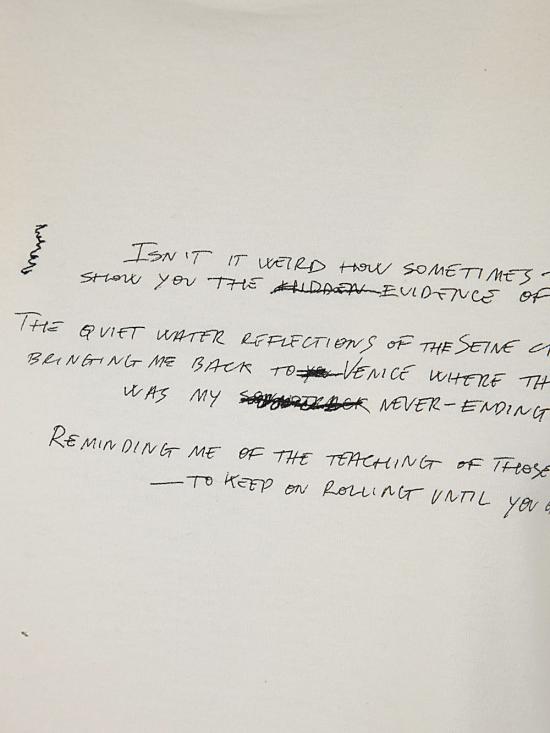 ISN'T IT WEIRD HOW SOMETIMES
SHOW YOU THE HIDDEN EVIDENCE OF
THE QUIET WATER REFLECTIONS OF THE SEINE
BRINGING ME BACK TO VENICE WHERE TH
WAS MY SOUNDTRACK NEVER-ENDING
REMINDING ME OF THE TEACHING OF THOSE
—TO KEEP ON ROLLING UNTIL YOU